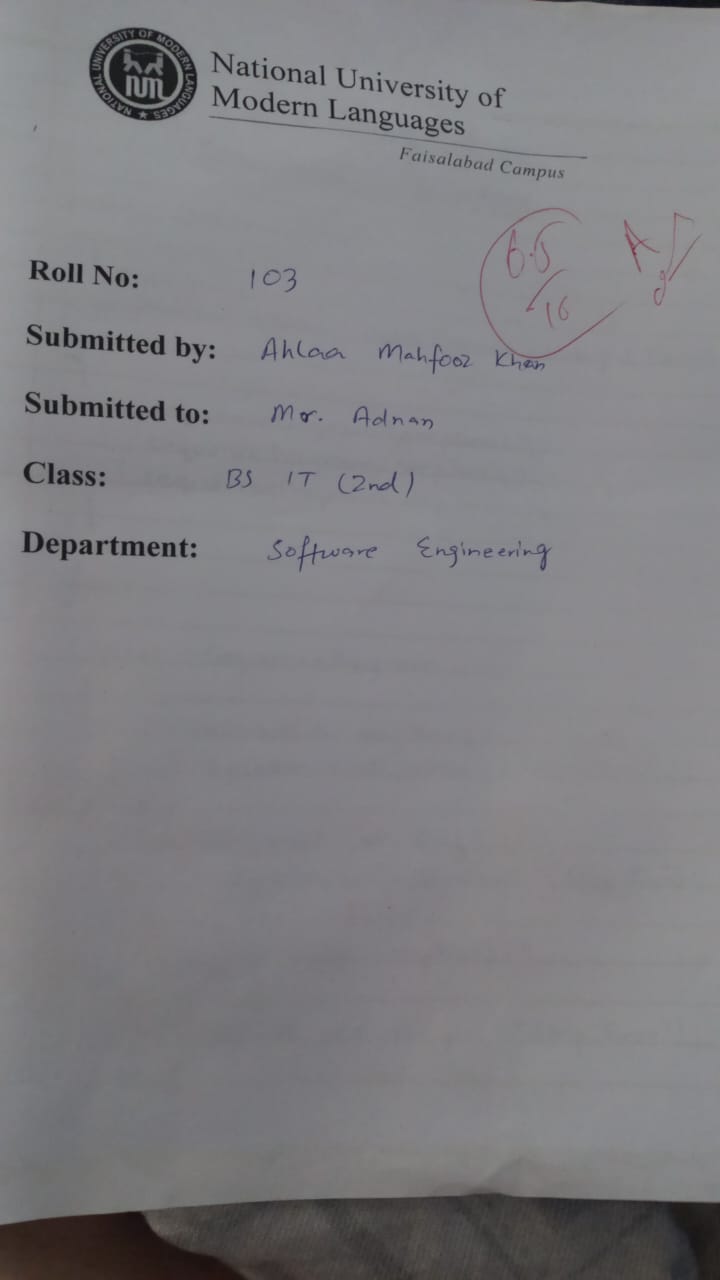 NATIONAL UNIVERSITY OF MODERN LANGUAGES
National University of
Modern Languages
Faisalabad Campus
6.5
10
Roll No: 103
Submitted by: Ahlaa Mahfooz Khan
Submitted to: Mr. Adnan
Class: BS IT (2nd)
Department: Software Engineering